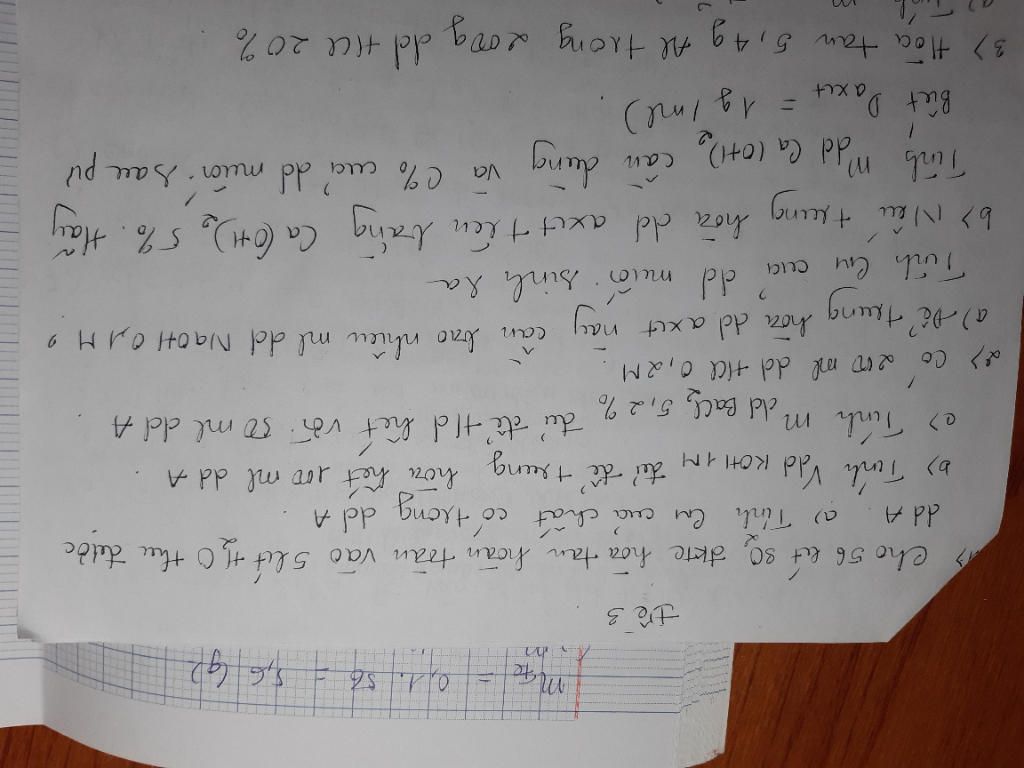 mFe = 0,1. 56 = 5,6 (g)
Đề 3
1> Cho 56 lít SO2 đktc hòa tan hoàn toàn vào 5 lít H2O thu được
dd A. a> Tính CM của chất có trong dd A.
b> Tính Vdd KOH 1M đủ để trung hòa hết 100 ml dd A.
c> Tính m dd BaCl2 5,2% đủ để t/d hết với 50 ml dd A
2> Có 200 ml dd HCl 0,2M.
a> Để trung hòa dd axit này cần bao nhiêu ml dd NaOH 0,1M ?
Tính CM của dd muối sinh ra
b> Nếu trung hòa dd axit trên bằng Ca(OH)2 5%. Hãy
Tính m dd Ca(OH)2 cần dùng và C% của dd muối sau pứ
Biết D axit = 1g/ml)
3> Hòa tan 5,4g Al trong 200g dd HCl 20%
a) Tính m